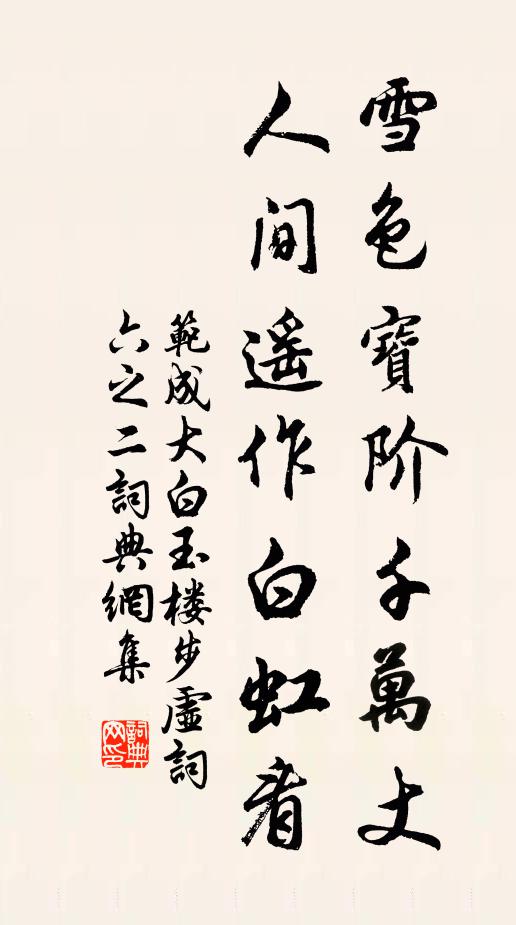 雪色寶阶千萬丈
人间遥作白虹看
範成大白玉楼步虛詞
六之二詞典網集
詞典
网印